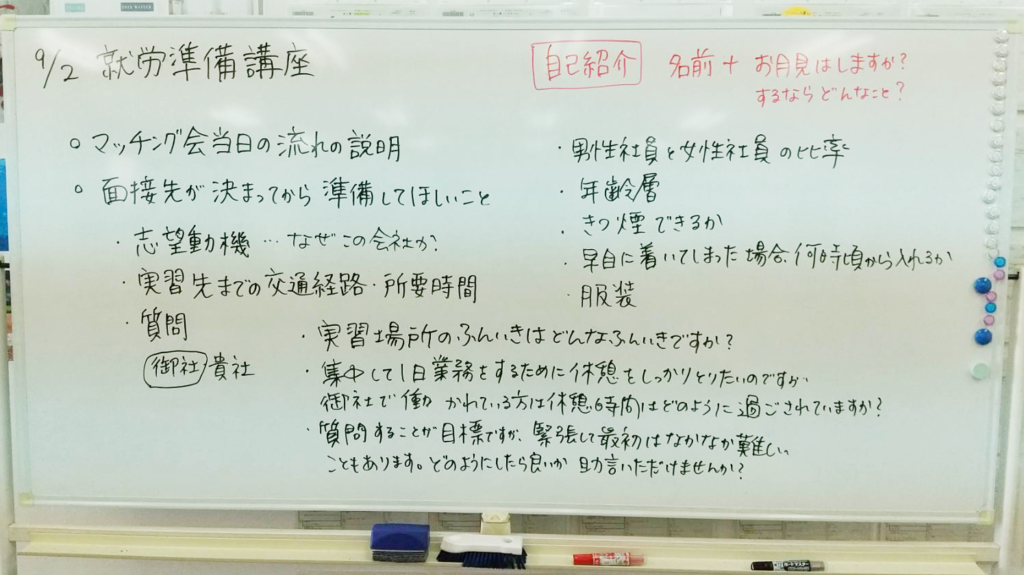 9/2 就労準備講座
自己紹介 名前+ お月見はしますか?
するならどんなこと?
○ マッチング会当日の流れの説明
○ 面接先が決まってから準備してほしいこと
・志望動機…なぜこの会社か?
・実習先までの交通経路・所要時間
・質問
御社・貴社
・男性社員と女性社員の比率
・年齢層
・きつ煙できるか
・早目に着いてしまった場合、何時頃から入れるか
・服装
・実習場所のふんいきはどんなふんいきですか?
・集中して1日業務をするために休憩をしっかりとりたいのですが、
御社で働かれている方は休憩時間はどのように過ごされていますか?
・質問することが目標ですが、緊張して最初はなかなか難しい。
こともあります。どのようにしたら良いか 助言いただけませんか?